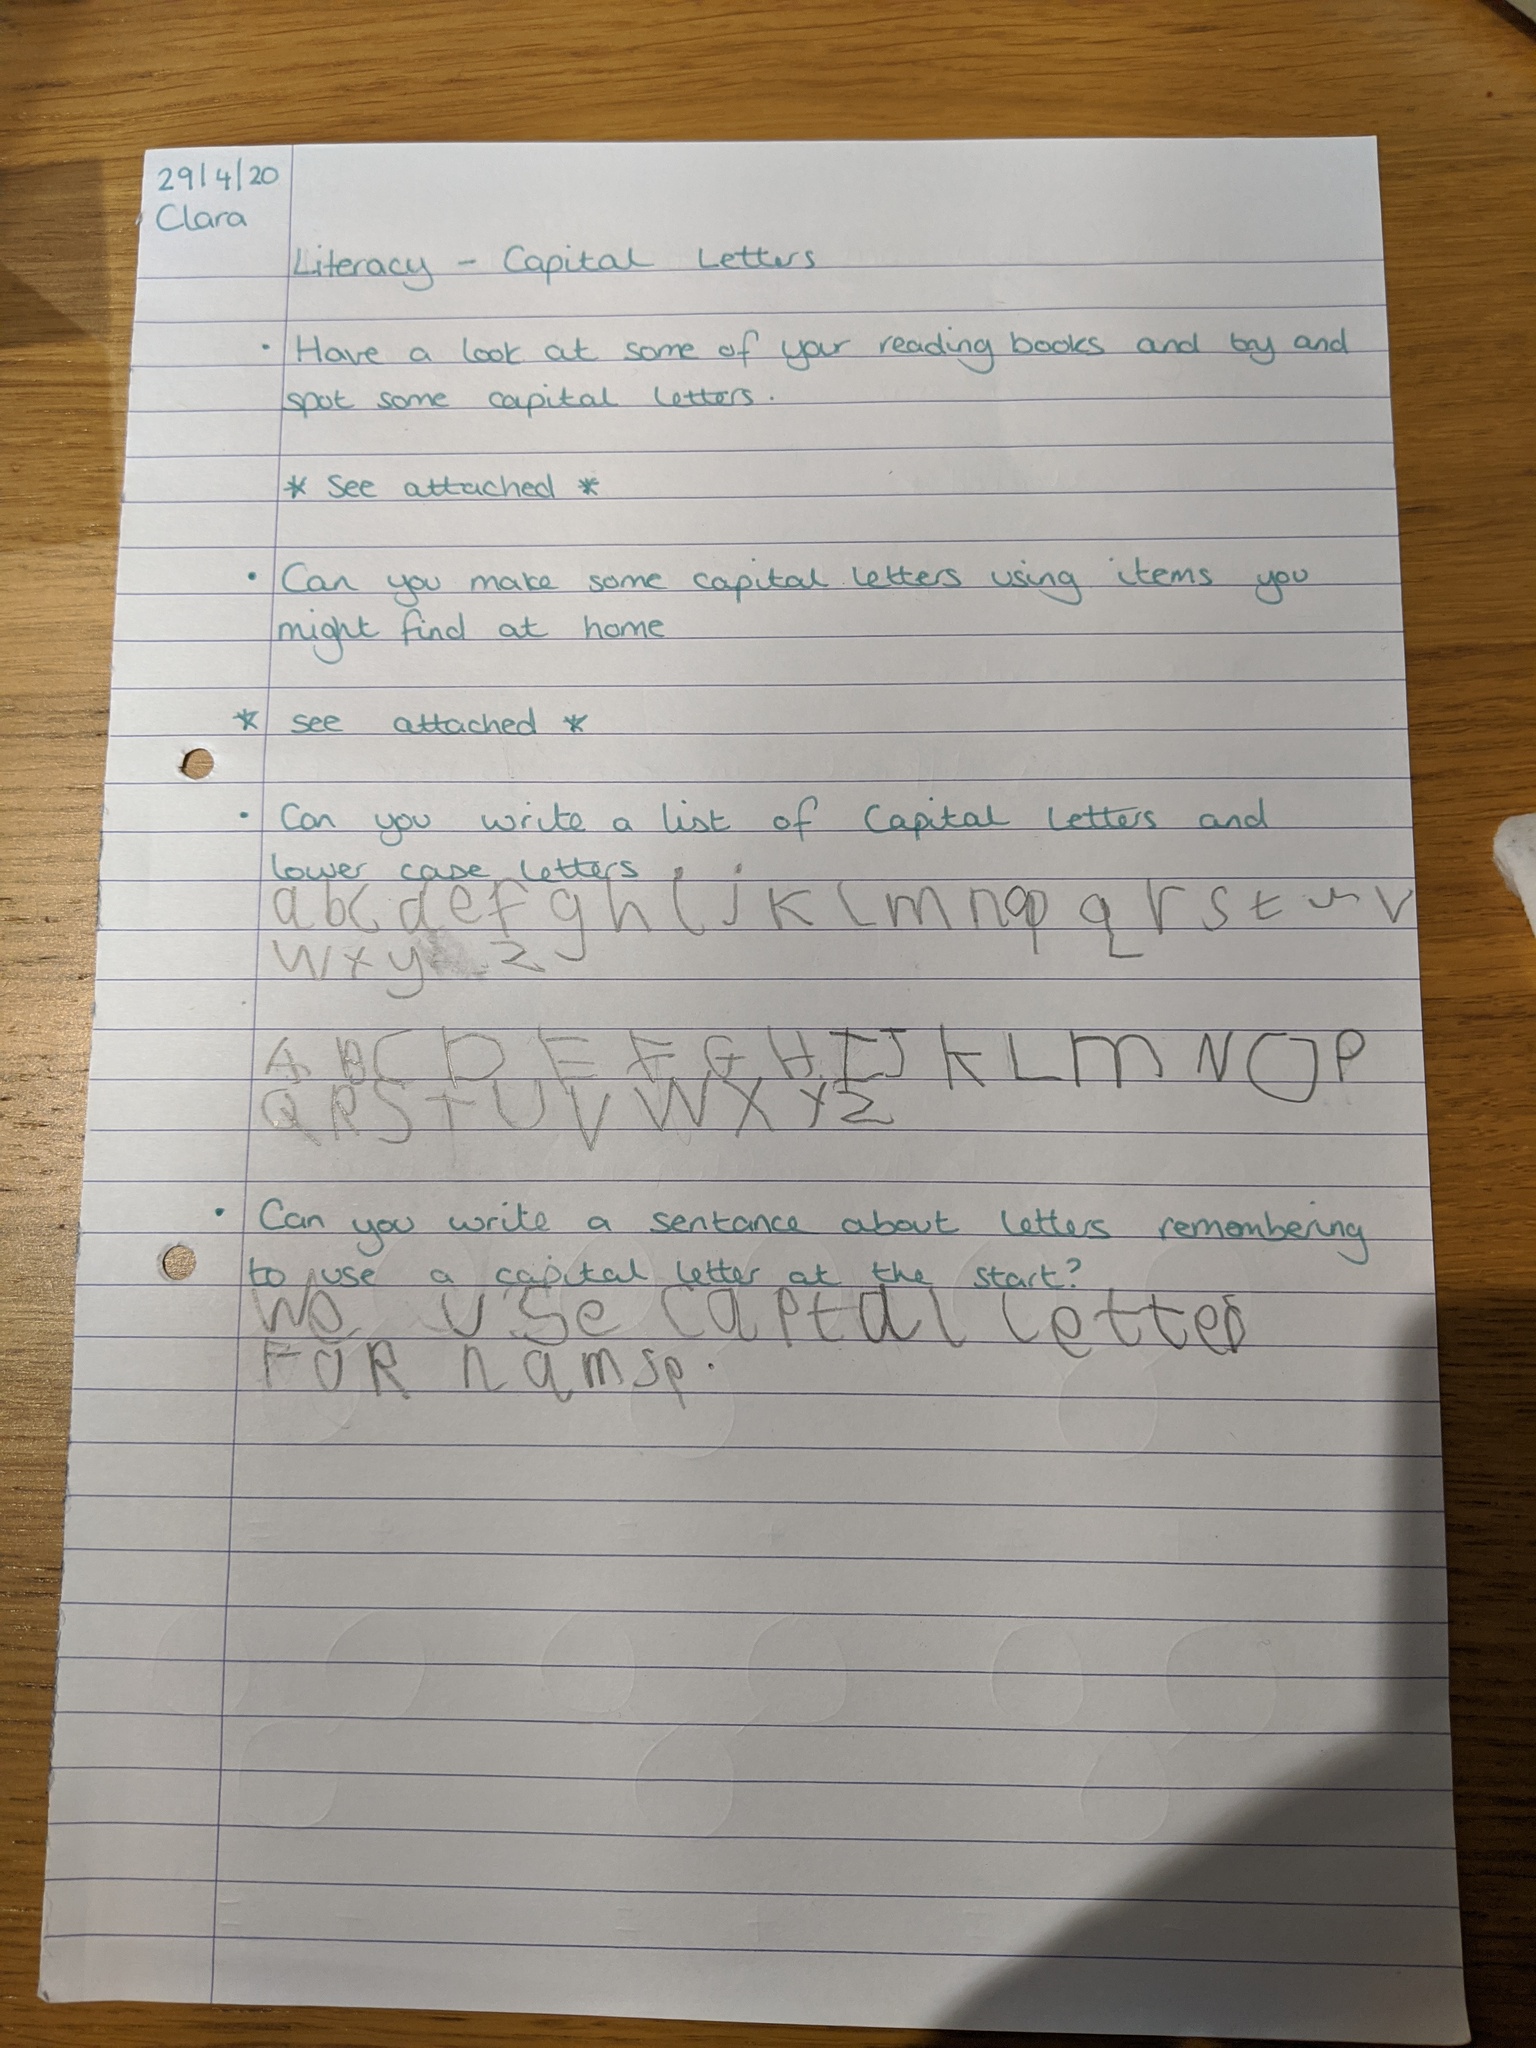 29/4/20
Clara
Literacy - Capital Letters
• Have a look at some of your reading books and try and
spot some capital letters.
* See attached *
• Can you make some capital letters using items you
might find at home
* see attached *
• Can you write a list of Capital letters and
lower case letters
a b c d e f g h i j k l m n o p q r s t u v
w x y z
A B C D E F G H I J K L M N O P
Q R S T U V W X Y Z
• Can you write a sentance about letters remembering
to use a capital letter at the start?
We use captal letters
FOR namsp.